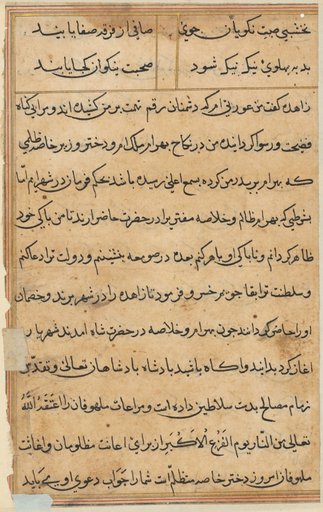 نخشبی صحبت نکویان جوی صافی از فرقه صفا یابند
بد به پهلوی نیک نیک شود صحبت نیکو از کجا یابند
زاهده گفت من عورتی ام که دشمنان رقم تهمت بر من کشیده اند و مرا بی گناه
فضیحت و رسوا گردانیده من در نکاح بهرام ملک ام و دختر وزیر خاصه ظلمی
که بهرام بر پدر من کرده بسمع اعلی رسیده باشد بحکم فرمان در شهر ام اما
بشرطی که بهرام ظالم و خلاصه مفتر برادر حضرت حاضر ارند تا من پاکی خود
ظاهر کردانم و ناپاکی او باهر کنم بعده در صومعه بنشینم و دولت ترا دعا کنم
و سلطنت ترا بقا جویم خرس و فرمود تا زاهده را در شهر برند و خصمان
او را حاضر کردانند چون بهرام و خلاصه در حضرت شاه امدند شهریار
اغاز کرد بدانید و اکاه باشید بادشاه بادشاهان تعالی و تقدس
زمام مصالح بدست سلاطین داده است و مراعات ملهوفان را
تعالی من النار یوم الفزع الاکبر از برای اعانت مظلومان و اغاثت
ملهوفان امروز دختر خاصه متظلم است شما را جواب دعوی او می باید